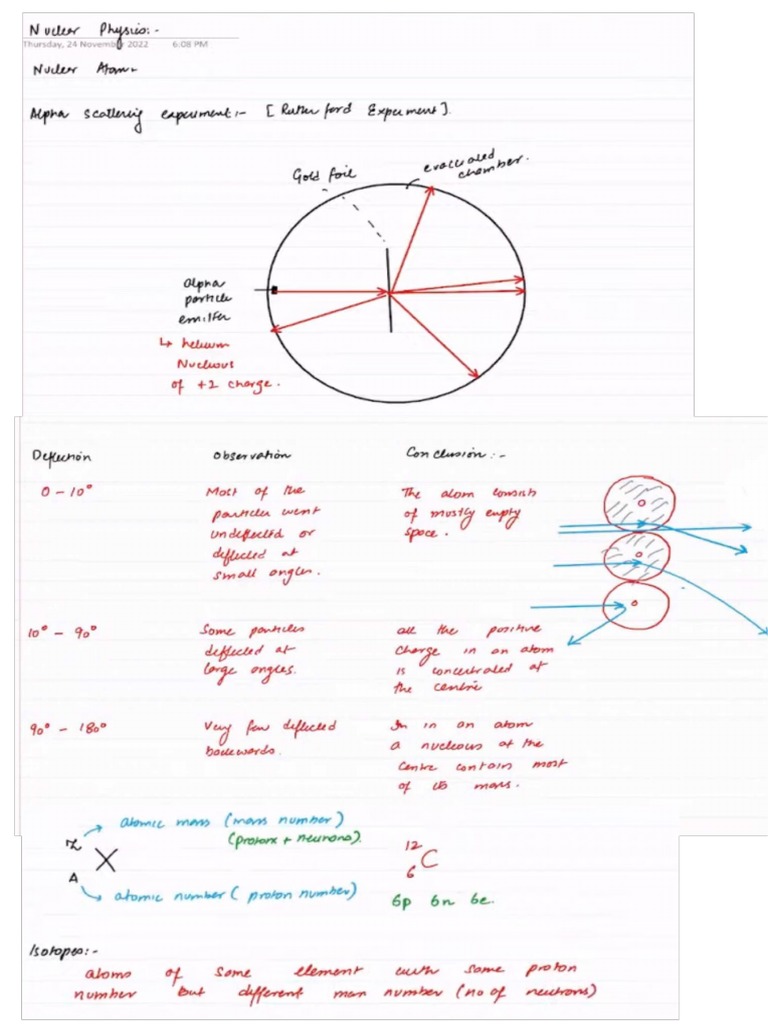 Nuclear Physics:-
Thursday, 24 November 2022 6:08 PM
Nuclear Atom-
Alpha scattering experiment:- [Rutherford Experiment].
Gold foil
evacuated chamber.
alpha
particle
emitter
↳ helium
Nucleous
of +2 charge.
Deflection Observation Conclusion:-
0 - 10° Most of the The atom consists
particles went of mostly empty
undeflected or space.
deflected at
small angles.
10° - 90° Some particles all the positive
deflected at charge in an atom
large angles. is concentrated at
the centre
90° - 180° Very few deflected In in an atom
backwards. a nucleous at the
centre contains most
of its mass.
Z atomic mass (mass number)
(protons + neutrons).
X
A atomic number (proton number)
12
C
6
6p 6n 6e.
Isotopes:-
atoms of same element with same proton
number but different mass number (no of neutrons)